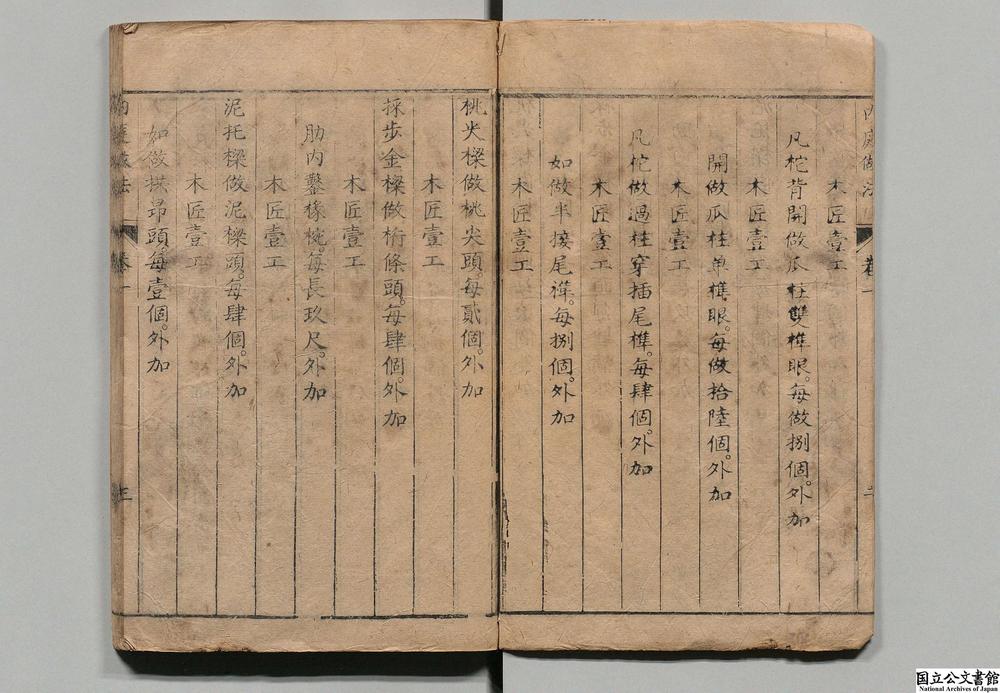 内庭做法 卷一 二
木匠壹工
凡柁背開做瓜柱雙榫眼。每做捌個。外加
木匠壹工
開做瓜柱單榫眼。每做拾陸個。外加
木匠壹工
凡柁做過柱穿插尾榫。每肆個。外加
木匠壹工
如做半接尾榫。每捌個。外加
木匠壹工
桃尖樑做桃尖頭。每貳個。外加
木匠壹工
採步金樑做桁條頭。每肆個。外加
木匠壹工
肋內鑿椽椀。每長玖尺。外加
木匠壹工
泥托樑做泥樑頭。每肆個。外加
木匠壹工
如做拱昴頭。每壹個。外加
卷一 三
国立公文書館
National Archives of Japan